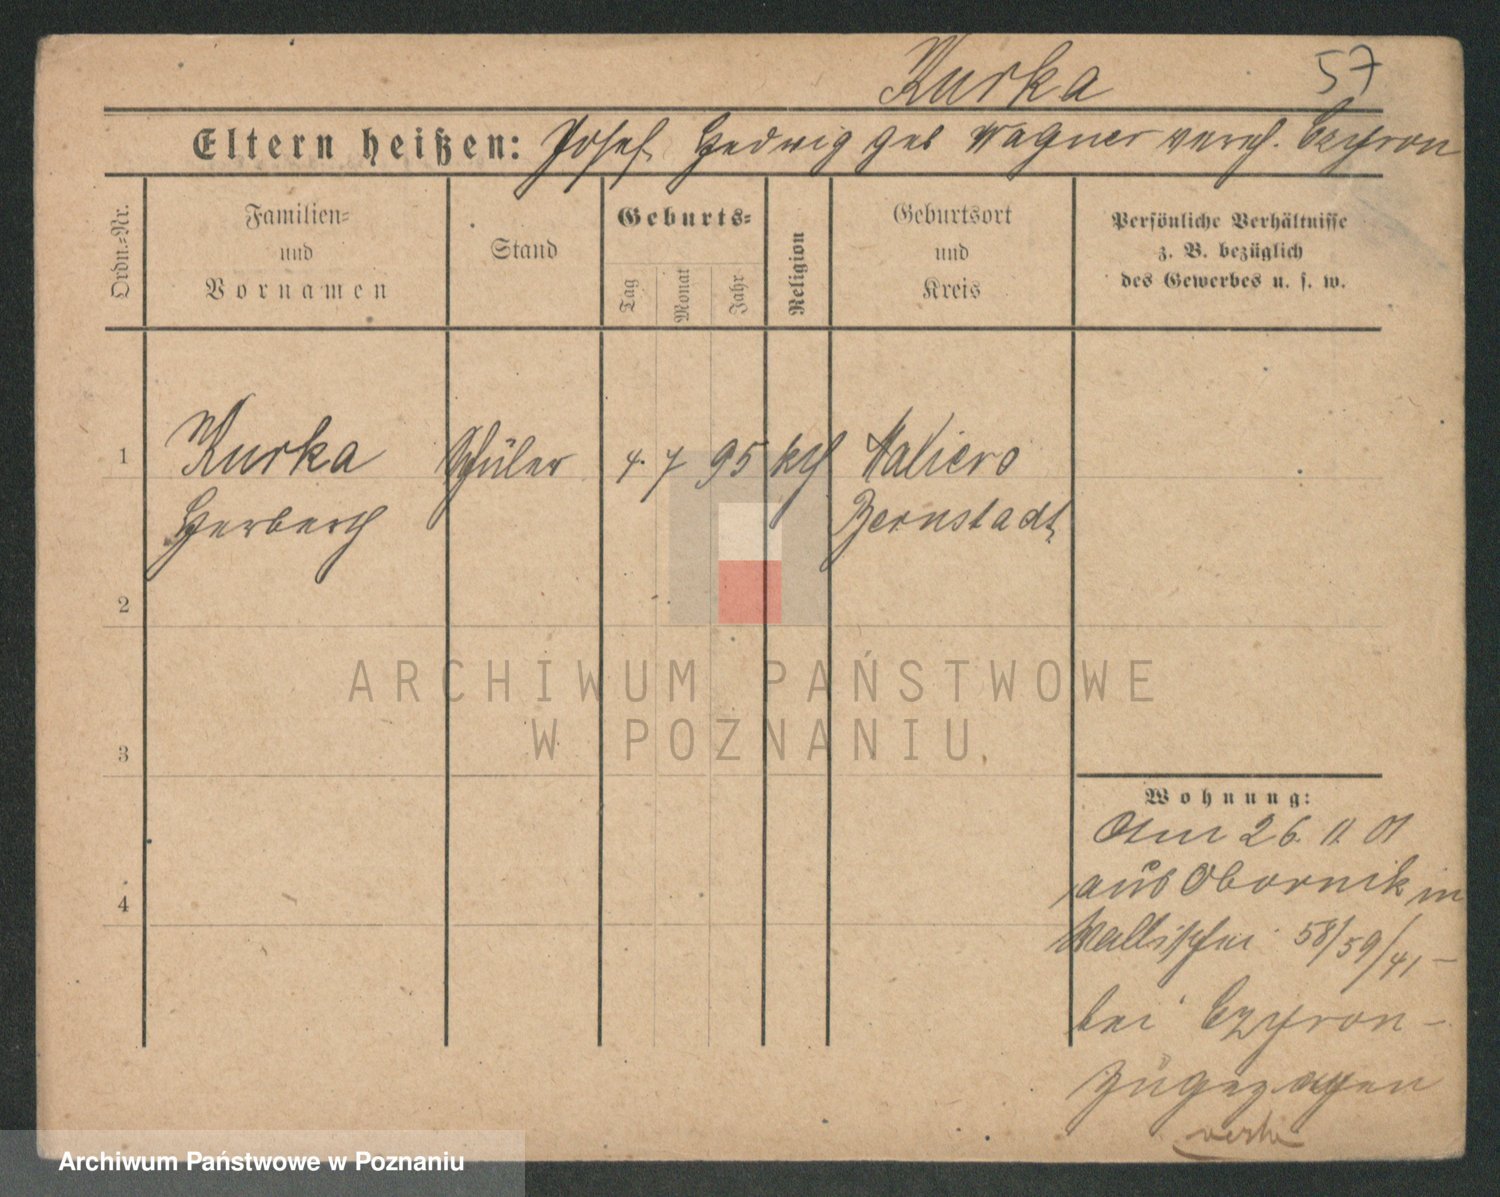 Kurka 57
Eltern heißen: Josef Hedwig geb Wagner verch. Czyron
Ordn.-Nr.
Familien-
und
Vornamen
Stand
Geburts-
Tag
Monat
Jahr
Religion
Geburtsort
und
Kreis
Persönliche Verhältnisse
z. B. bezüglich
des Gewerbes u. s. w.
1 Kurka Schüler 4. 7 95 kth
Herberth Bernstadt
2
ARCHIWUM PAŃSTWOWE
W POZNANIU
3
4
Wohnung:
Am 26. 11 01
aus Obornik in
Wallischei 58/59/41 -
bei Czyron -
zugezogen
Archiwum Państwowe w Poznaniu